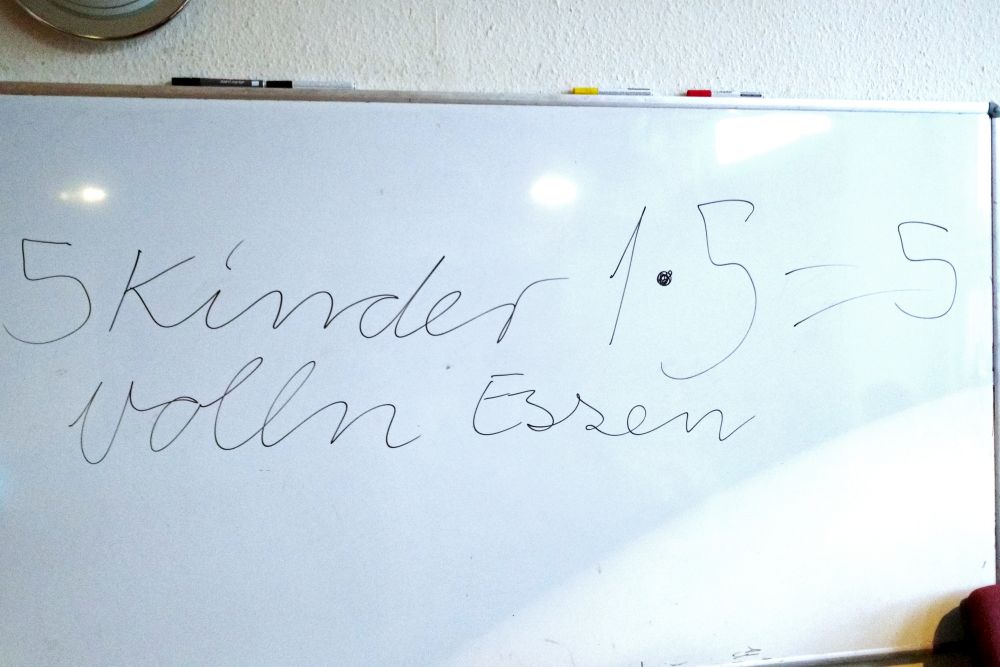 5 Kinder 1 • 5 = 5
volln Essen